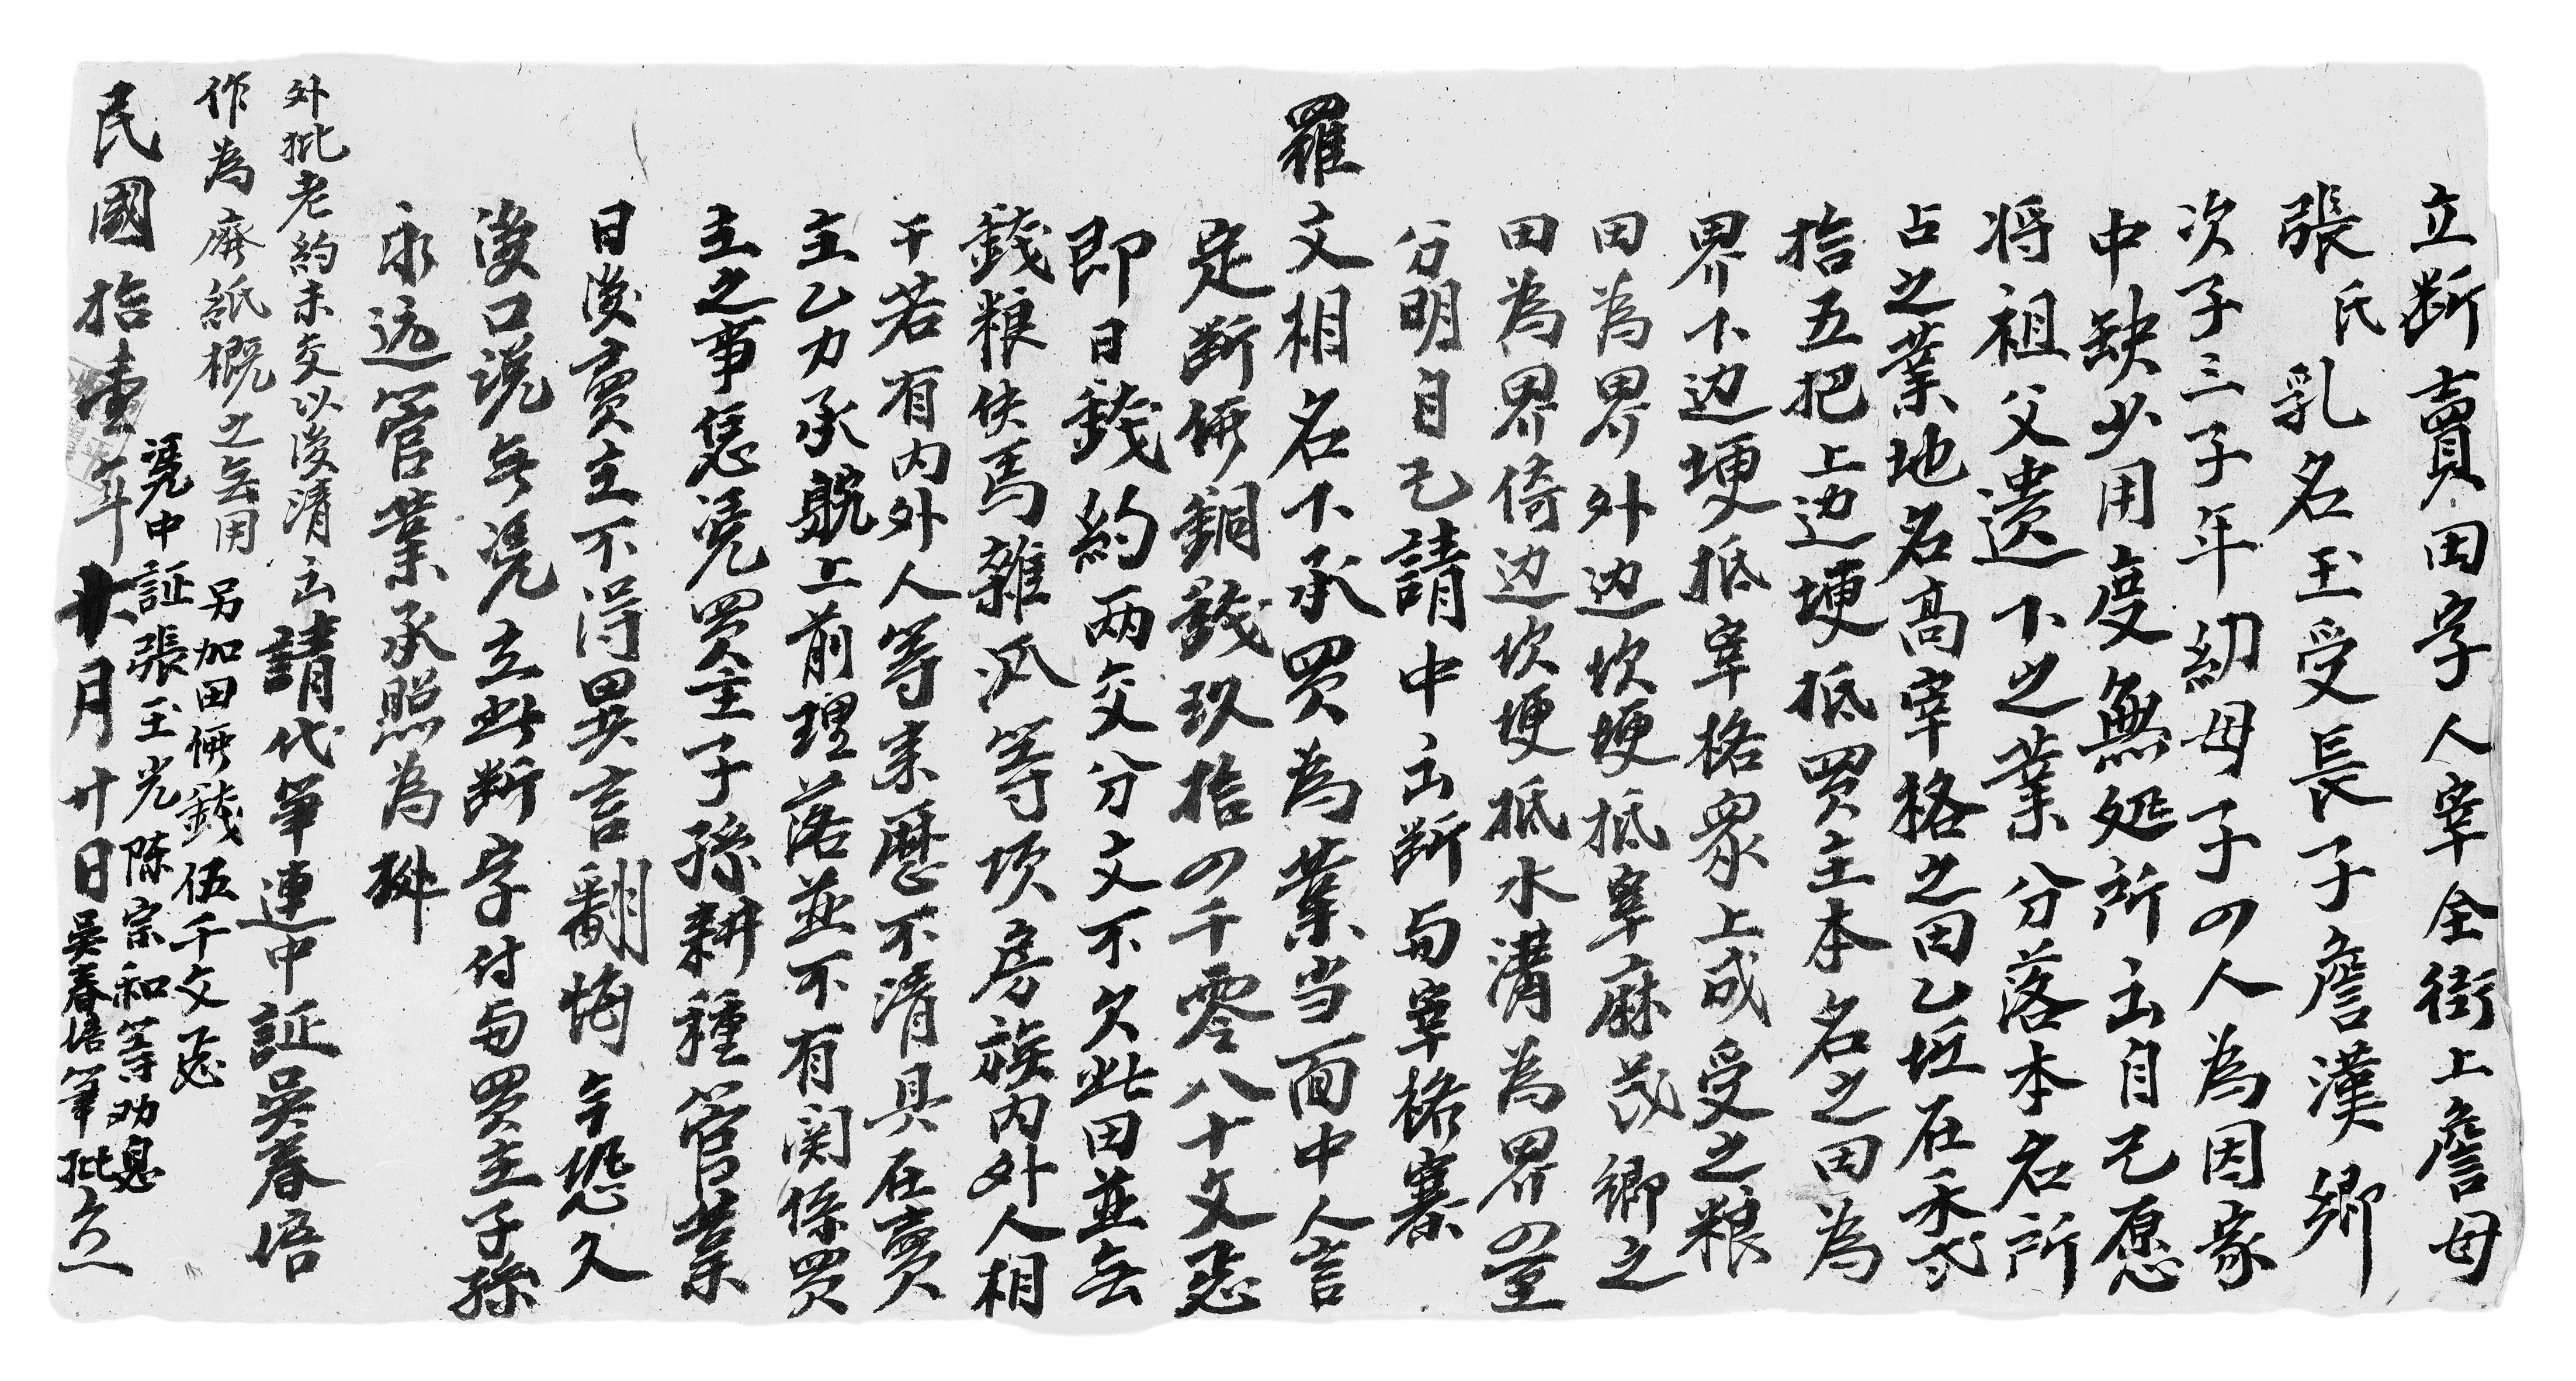 立断賣田字人宰全街上詹母
張氏乳名玉受長子詹漢卿
次子三子年幼母子四人為因家
中缺少用度無処所出自己愿
将祖父遗下之業分落本名所
占之業地名高宰格之田乙坵在禾弍
拾五把上边埂抵買主本名之田為
界下边埂抵宰格眾上成受之粮
田為界外边坎埂抵宰麻茂卿之
田為界倚边坎埂抵水溝為界四至
分明自己請中出断与宰格寨
羅文相名下承買為業当面中人言
定断價銅錢玖拾四千零八十文愿
即日錢約两交分文不欠此田並无
錢粮伕馬雜派等項房族内外人相
干若有内外人等来歷不清具在賣
主乙力承躭上前理落並不有関係買
主之事恁凴買主子孫耕種管業
日後賣主不得異言翻悔今恐久
後口说無凴立此断字付与買主子孫
永远管業承照為㨿
外批老約未交以後清出請代筆連中証吳春培
作為廢紙概之無用
另加田價錢伍千文愿
凴中証張玉光陳宗和等劝息
民國拾壹年廿月廿日吴春培筆批立